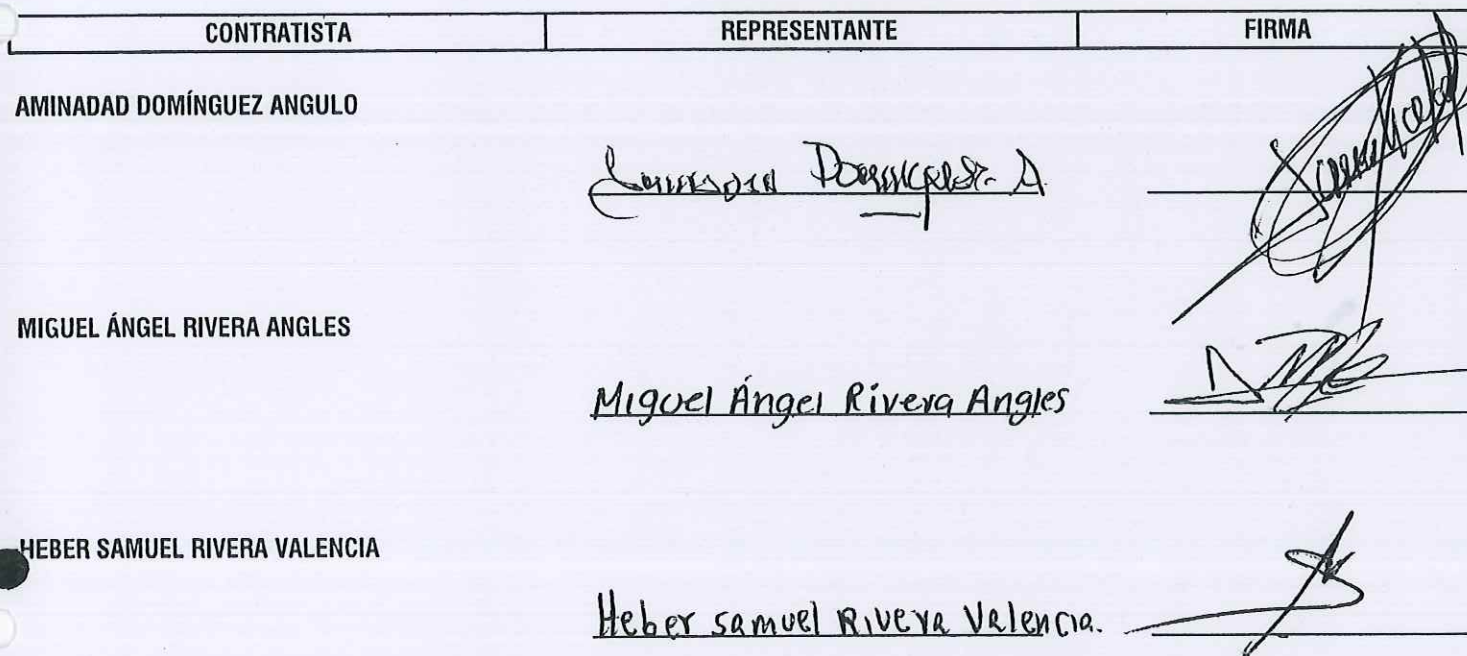 CONTRATISTA REPRESENTANTE FIRMA
AMINADAD DOMÍNGUEZ ANGULO
A
MIGUEL ÁNGEL RIVERA ANGLES
Miguel Ángel Rivera Angles
HEBER SAMUEL RIVERA VALENCIA
Heber samuel Rivera Valencia.